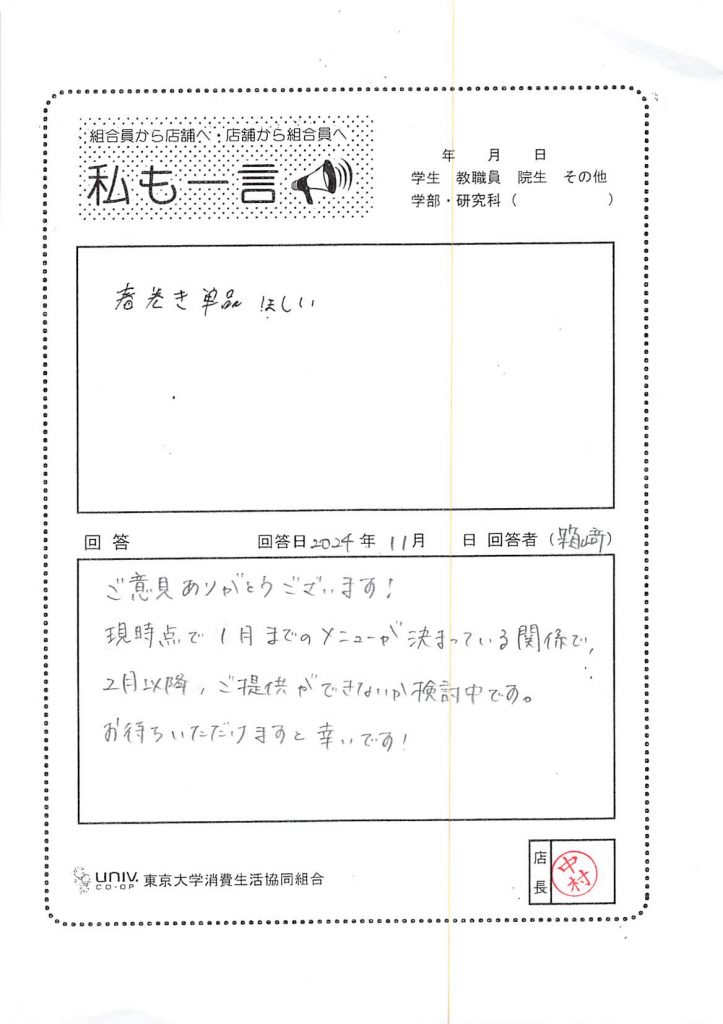 組合員から店舗へ・店舗から組合員へ
私も一言
年 月 日
学生 教職員 院生 その他
学部・研究科（ ）
春巻き単品 ほしい
回答 回答日2024年 11月 日 回答者（箱崎）
ご意見ありがとうございます！
現時点で1月までのメニューが決まっている関係で，
2月以降，ご提供ができないか検討中です。
お待ちいただけますと幸いです！
UNIV. CO-OP 東京大学消費生活協同組合
店長
中村